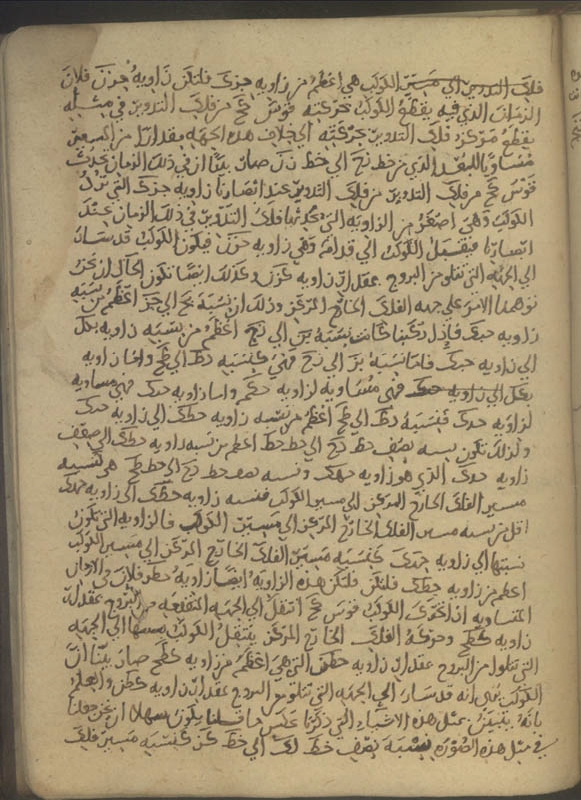 فلك التدوير الى مسير الكوكب هى اعظم من زاويه جزك فلتكن زاويه حزن فلان
الزمان الذى فيه يقطع الكوكب بحركته قوس كح من فلك التدوير فى مثله
يقطع مركز فلك التدوير بحركته الى خلاف هذه الجهه مقدارا من المسير
مساويا للبعد الذى من خط زح الى خط زن صار بينا ان فى ذلك الزمان تحدث
قوس كح من فلك التدوير عند ابصارنا زاويه جزك التى تزيل
الكوكب وهى اصغر من الزاويه التى يحدثها فلك التدوير فى ذلك الزمان عند
ابصارنا فينقل الكوكب الى قدامه وهى زاويه حزن فيكون الكوكب قد سار
الى الجهه التى تتلو من البروج بمقدار زاويه كزن وكذلك ايضا تكون الحال ان نحن
توهمنا الامر على جهه الفلك الخارج المركز وذلك ان نسبة بح الى جز اعظم من نسبة
زاويه الى زاويه حبك فاذا ركبنا كانت نسبة بز الى زج اعظم من نسبة زاويه
الى زاويه حبك فاما نسبة بز الى زح فهى كنسبة دط الى طح واما زاويه
فهى مساويه لزاويه حكم واما زاويه حبك فهى مساويه
لزاويه حدك فنسبة دط الى طح اعظم من نسبه زاويه حطك الى زاويه حدك
ولذلك تكون نسبه نصف خط دح الى خط حط اعظم من نسبه زاويه حطك الى ضعف
زاويه حدك الذى هو زاويه حهك ونسبه نصف خط دح الى خط طح هى كنسبه
مسير الفلك الخارج المركز الى مسير الكوكب فنسبه زاويه حطك الى زاويه حهك
اقل من نسبه مسير الفلك الخارج المركز الى مسير الكوكب فالزاويه التى تكون
نسبتها الى زاويه حهك كنسبه مسير الفلك الخارج المركز الى مسير الكوكب
اعظم من زاويه حطك فلتكن هذه الزاويه ايضا زاويه حطن فلان فى الازمان
المتساويه اذا تحرك الكوكب قوس كح انتقل الى الجهه المتقدمه من البروج بمقدار
زاويه كطح وحركة الفلك الخارج المركز ينتقل الكوكب بسببها الى الجهه
التى تتلو من البروج بمقدار زاويه حطن التى هى اعظم من زاويه كطح صار بينا ان
الكوكب يرى انه قد سار الى الجهه التى تتلو من البروج بمقدار زاويه كطن ونعلم
بانه يتبين بمثل هذه الاشياء التى ذكرنا عكس ما قلنا بكون سهلا ان نحن جعلنا
فى مثل هذه الصورة نسبة نصف خط لك الى خط كز كنسبه مسير فلك